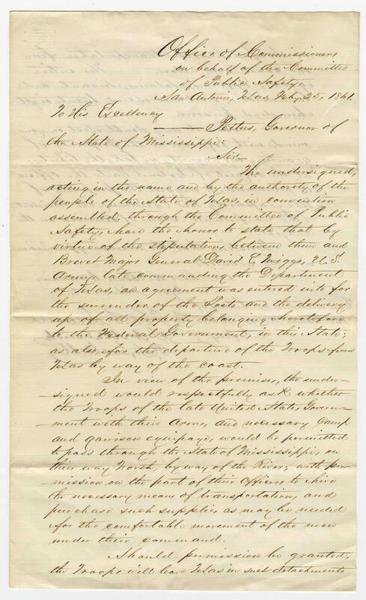 Office of Commissioners
on behalf of the Committee
of Public Safety.
San Antonio, Texas, Feby 25, 1861.
To His Excellency
Pettus, Governor of
the State of Mississippi:
Sir—
The undersigned,
acting in the name and by the authority of the
people of the State of Texas, in convention
assembled, through the Committee of Public
Safety, have the honor to state that by
virtue of the stipulations between them and
Brevet Major General David E. Twiggs, U.S.
Army, late commanding the Department
of Texas, an agreement was entered into for
the surrender of the Posts and the delivery
up of all property belonging heretofore
to the Federal Government, in this State;
as also for the departure of the Troops from
Texas by way of the coast.
In view of the premises, the under-
-signed would respectfully ask whether
the Troops of the late United States Govern-
-ment with their Arms, and necessary Camp
and garrison equipage, would be permitted
to pass through the State of Mississippi, on
their way North, by way of the River; with per-
mission on the part of their Officers to hire
the necessary means of transportation, and
purchase such supplies as may be needed
for the comfortable movement of the men
under their command.
Should permission be granted,
the Troops will leave Texas in such detachments